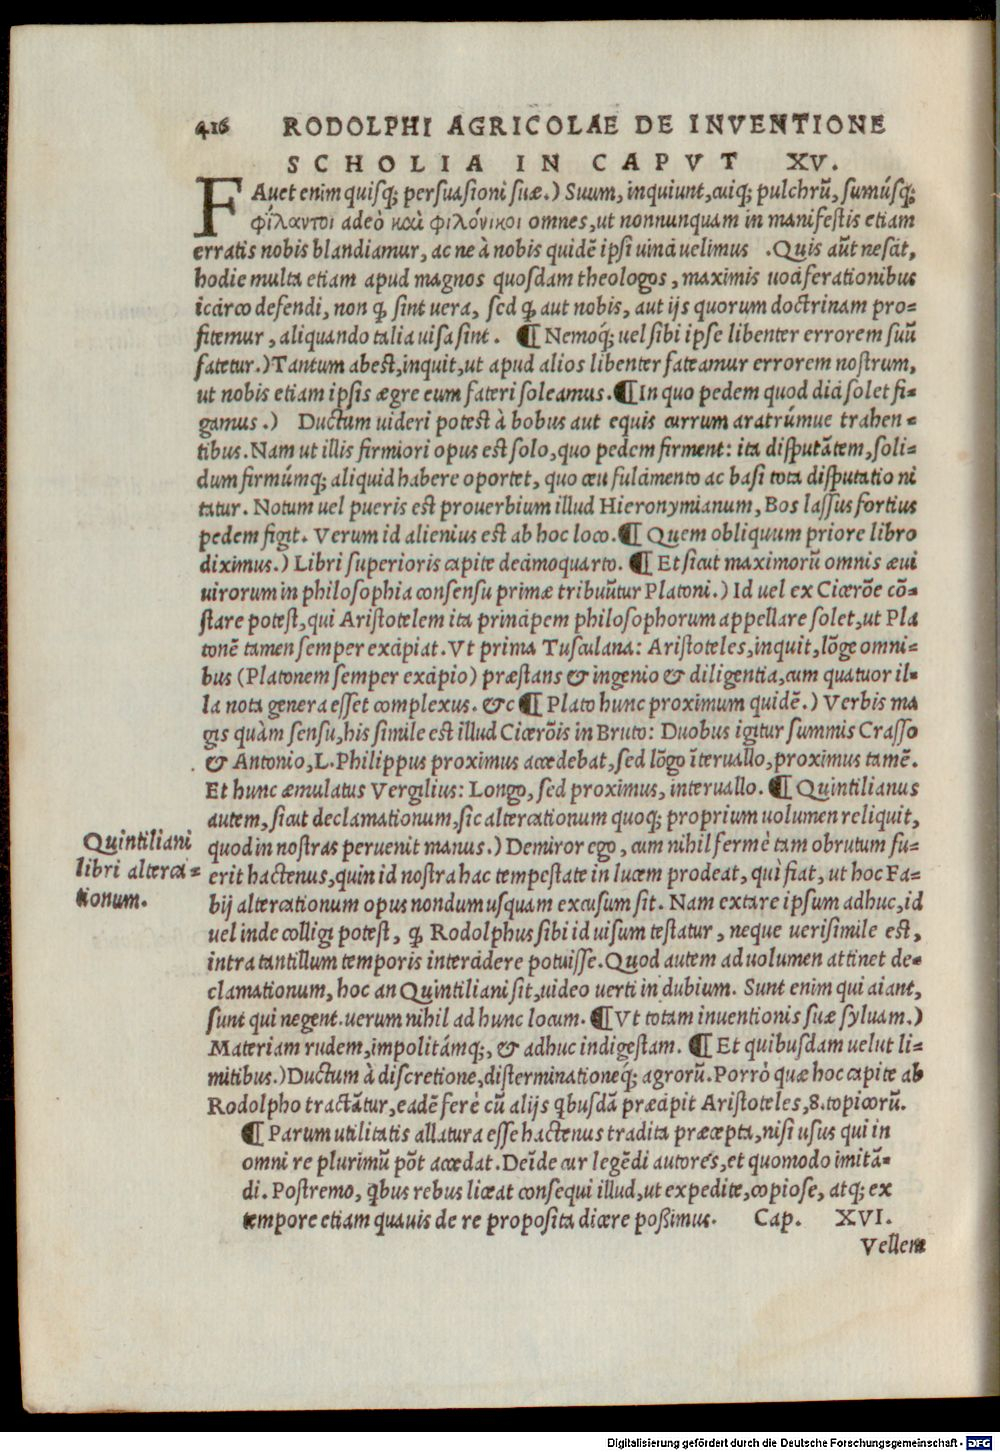 416 RODOLPHI AGRICOLAE DE INVENTIONE
SCHOLIA IN CAPVT XV.
FAuet enim quisq; persuasioni suæ.) Suum, inquiunt, cuiq; pulchrū, sumúsq;
φίλαυτοι adeò καὶ φιλόνικοι omnes, ut nonnunquam in manifestis etiam
erratis nobis blandiamur, ac ne à nobis quidē ipsi uinci uelimus . Quis aūt nescit,
hodie multa etiam apud magnos quosdam theologos, maximis uociferationibus
icirco defendi, non ꝙ sint uera, sed ꝙ aut nobis, aut ijs quorum doctrinam pro-
fitemur, aliquando talia uisa sint. ¶ Nemoq; uel sibi ipse libenter errorem suū
fatetur.) Tantum abest, inquit, ut apud alios libenter fateamur errorem nostrum,
ut nobis etiam ipsis ægre eum fateri soleamus. ¶ In quo pedem quod dici solet fi-
gamus.) Ductum uideri potest à bobus aut equis currum aratrúmue trahen-
tibus. Nam ut illis firmiori opus est solo, quo pedem firment: ita disputātem, soli-
dum firmúmq; aliquid habere oportet, quo ceu fulcimento ac basi tota disputatio ni
tatur. Notum uel pueris est prouerbium illud Hieronymianum, Bos lassus fortius
pedem figit. Verum id alienius est ab hoc loco. ¶ Quem obliquum priore libro
diximus.) Libri superioris capite decimoquarto. ¶ Et sicut maximorū omnis æui
uirorum in philosophia consensu primæ tribuūtur Platoni.) Id uel ex Cicerōe cō-
stare potest, qui Aristotelem ita principem philosophorum appellare solet, ut Pla
tonē tamen semper excipiat. Vt prima Tusculana: Aristoteles, inquit, lōge omni-
bus (Platonem semper excipio) præstans & ingenio & diligentia, cum quatuor il-
la nota genera esset complexus. &c ¶ Plato hunc proximum quidē.) Verbis ma
gis quàm sensu, his simile est illud Cicerōis in Bruto: Duobus igitur summis Crasso
& Antonio, L. Philippus proximus accedebat, sed lōgo īteruallo, proximus tamē.
Et hunc æmulatus Vergilius: Longo, sed proximus, interuallo. ¶ Quintilianus
autem, sicut declamationum, sic altercationum quoq; proprium uolumen reliquit,
quod in nostras peruenit manus.) Demiror ego, cum nihil fermè tam obrutum fu-
erit hactenus, quin id nostra hac tempestate in lucem prodeat, quì fiat, ut hoc Fa-
bij altercationum opus nondum usquam excusum sit. Nam extare ipsum adhuc, id
uel inde colligi potest, ꝙ Rodolphus sibi id uisum testatur, neque uerisimile est,
intra tantillum temporis intercidere potuisse. Quod autem ad uolumen attinet de-
clamationum, hoc an Quintiliani sit, uideo uerti in dubium. Sunt enim qui aiant,
sunt qui negent. uerum nihil ad hunc locum. ¶ Vt totam inuentionis suæ syluam.)
Materiam rudem, impolitámq;, & adhuc indigestam. ¶ Et quibusdam uelut li-
mitibus.) Ductum à discretione, disterminationeq; agrorū. Porrò quæ hoc capite ab
Rodolpho tractātur, eadē ferè cū alijs qbusdā præcipit Aristoteles, 8. topicorū.
Quintiliani
libri alterca-
tionum.
¶ Parum utilitatis allatura esse hactenus tradita præcepta, nisi usus qui in
omni re plurimū pōt accedat. Deīde cur legēdi autores, et quomodo imitā-
di. Postremo, qbus rebus liceat consequi illud, ut expedite, copiose, atq; ex
tempore etiam quauis de re proposita dicere possimus. Cap. XVI.
Vellem
Digitalisierung gefördert durch die Deutsche Forschungsgemeinschaft - DFG